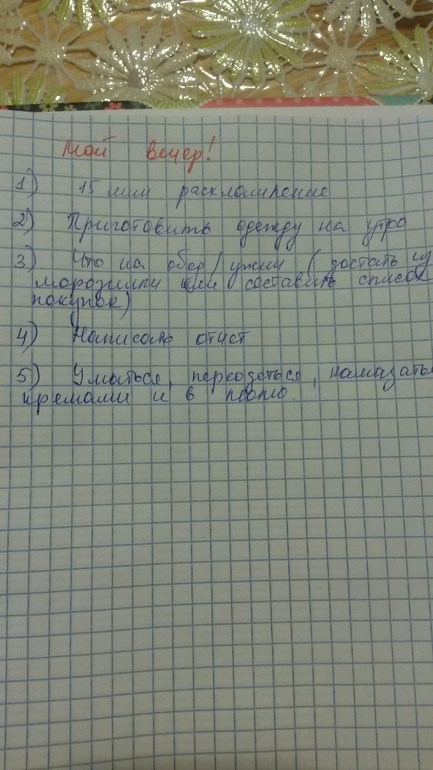 Мой вечер!
1) 15 мин расхламление
2) Приготовить одежду на утро
3) Что на обед/ужин (достать из
морозилки или составить список
покупок)
4) Написать отчет
5) Умыться, переодеться, намазаться
кремами и в